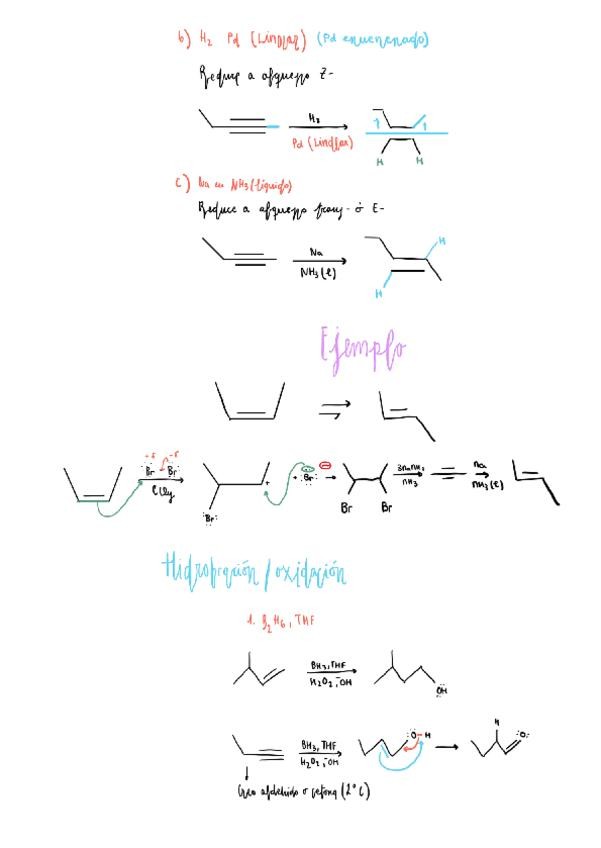 b) H2 Pd (Lindlar) (Pd envenenado)
Reduce a alqueno Z-
H2
Pd (Lindlar)
H H
c) Na en NH3 (líquido)
Reduce a alqueno trans- ó E-
Na
NH3 (l)
H
H
Ejemplo
Br Br
CCl4
Br
+ :Br:
Br Br
3NaNH2
NH3
Na
NH3(l)
Hidroboración / oxidación
1. B2H6, THF
BH3, THF
H2O2, -OH
OH
BH3, THF
H2O2, -OH
O-H
H
O:
aldehído o cetona (2°C)